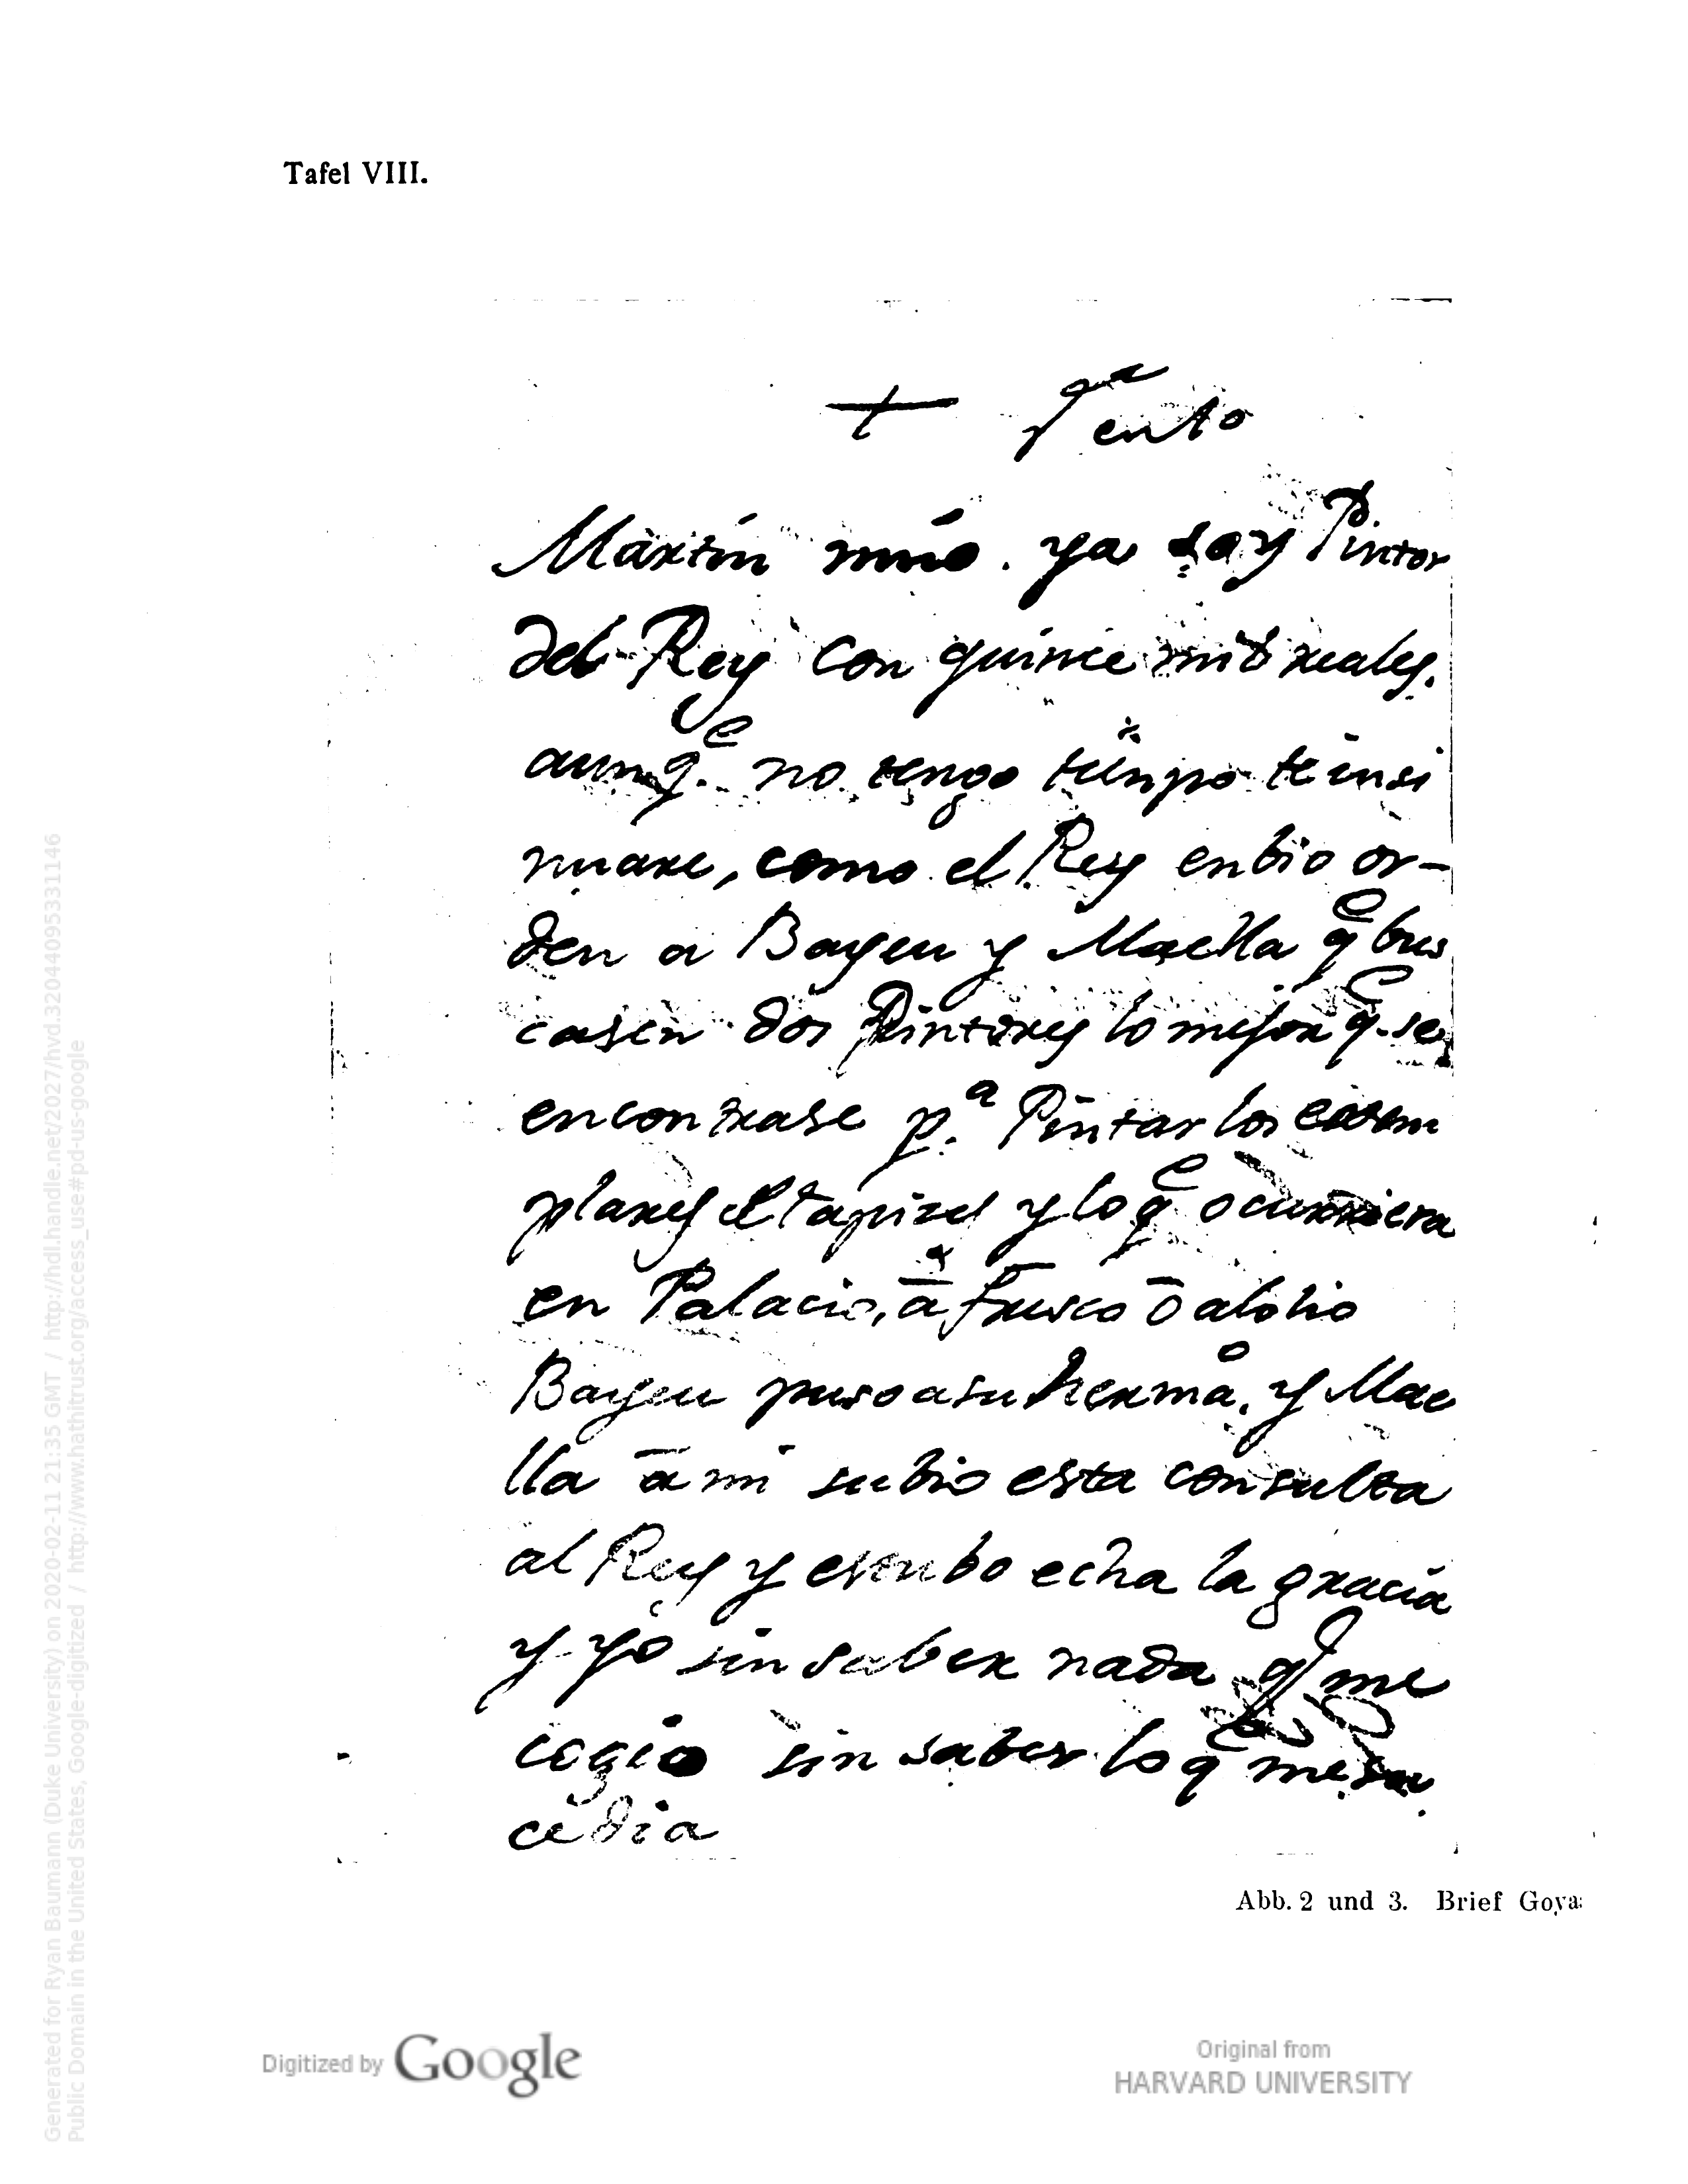 Tafel VIII.
+
Martin mio. ya soy Pintor
del Rey con quince mil reales.
aunq.e no tengo tienpo te insi
nuare, como el Rey enbio or-
den a Bayeu y Maella qe bus
casen dos Pintores lo mejor qe se
encontrase p.a Pintar los exem
plares de tapices y lo qe ocurriera
en Palacio, a fresco o al olio
Bayeu puso a su hermao. y Mae
lla a mi subio esta consulta
al Rey y estubo echa la gracia
y yo sin saber nada qe me
cogio sin saber lo qe me su
cedia
Abb. 2 und 3. Brief Goya
Digitized by Google
Original from
HARVARD UNIVERSITY
Generated for Ryan Baumann (Duke University) on 2020-02-11 21:35 GMT / http://hdl.handle.net/2027/hvd.32044095331146
Public Domain in the United States, Google-digitized / http://www.hathitrust.org/access_use#pd-us-google